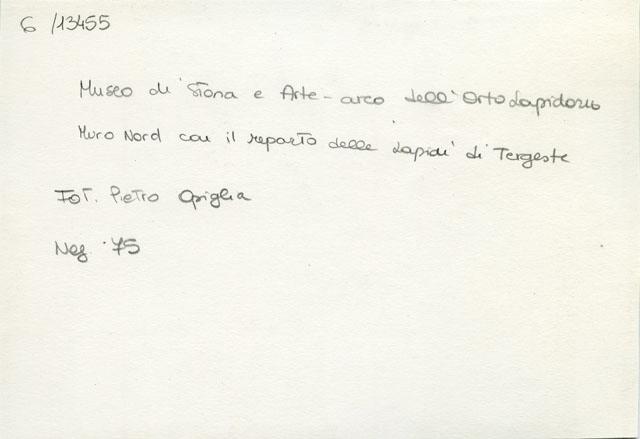 6 /13455
Museo di Storia e Arte - arco dell'Orto Lapidario
Muro Nord con il reparto delle Lapidi di Tergeste
Fot. Pietro Opiglia
Neg. 75